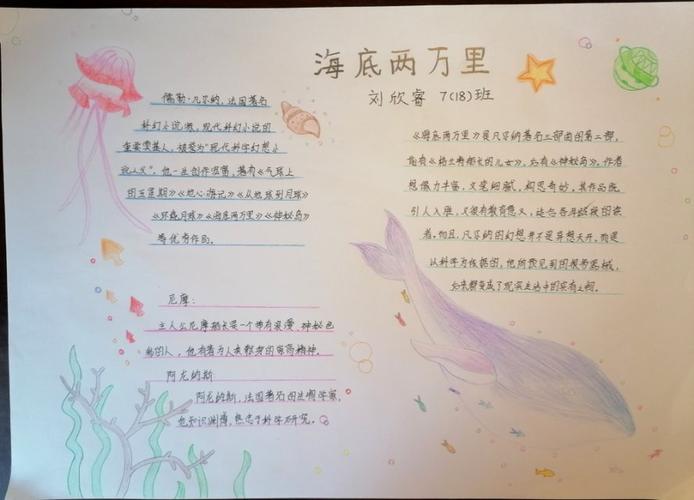 海底两万里
刘欣睿 7(18)班
儒勒·凡尔纳,法国著名
科幻小说家,现代科幻小说的
重要奠基人,被誉为"现代科学幻想小
说之父"。他一生创作颇丰,著有《气球上
的五星期》《地心游记》《从地球到月球》
《环绕月球》《海底两万里》《神秘岛》
等优秀作品。
尼摩:
主人公尼摩船长是一个带有浪漫、神秘色
彩的人,他有着为人类献身的崇高精神。
阿龙纳斯
阿龙纳斯,法国著名的生物学家,
他知识渊博,热衷于科学研究。
《海底两万里》是凡尔纳著名三部曲的第二部,
前有《格兰特船长的儿女》,后有《神秘岛》。作者
想像力丰富,文笔细腻,构思奇妙,其作品既
引人入胜,又很有教育意义,适合各年龄段的读
者。而且,凡尔纳的幻想并不是异想天开,而是
以科学为依据的,他所预见到的很多器械,
后来都变成了现实生活中的实有之物。